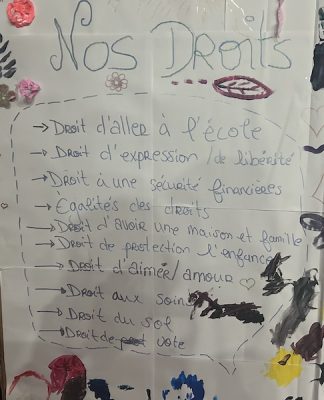 Nos Droits
→ Droit d'aller à l'école
→ Droit d'expression /de libérité
→ Droit à une sécurité financières
→ Egalités des droits
→ Droit d'avoir une maison et famille
→ Droit de protection l'enfance
→ Droit d'aimér/amour ♡
→ Droit aux soins
→ Droit du sol
→ Droit de vote